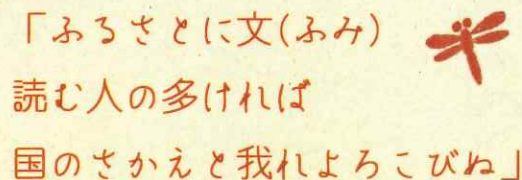 「ふるさとに文(ふみ)
読む人の多ければ
国のさかえと我れよろこびぬ」